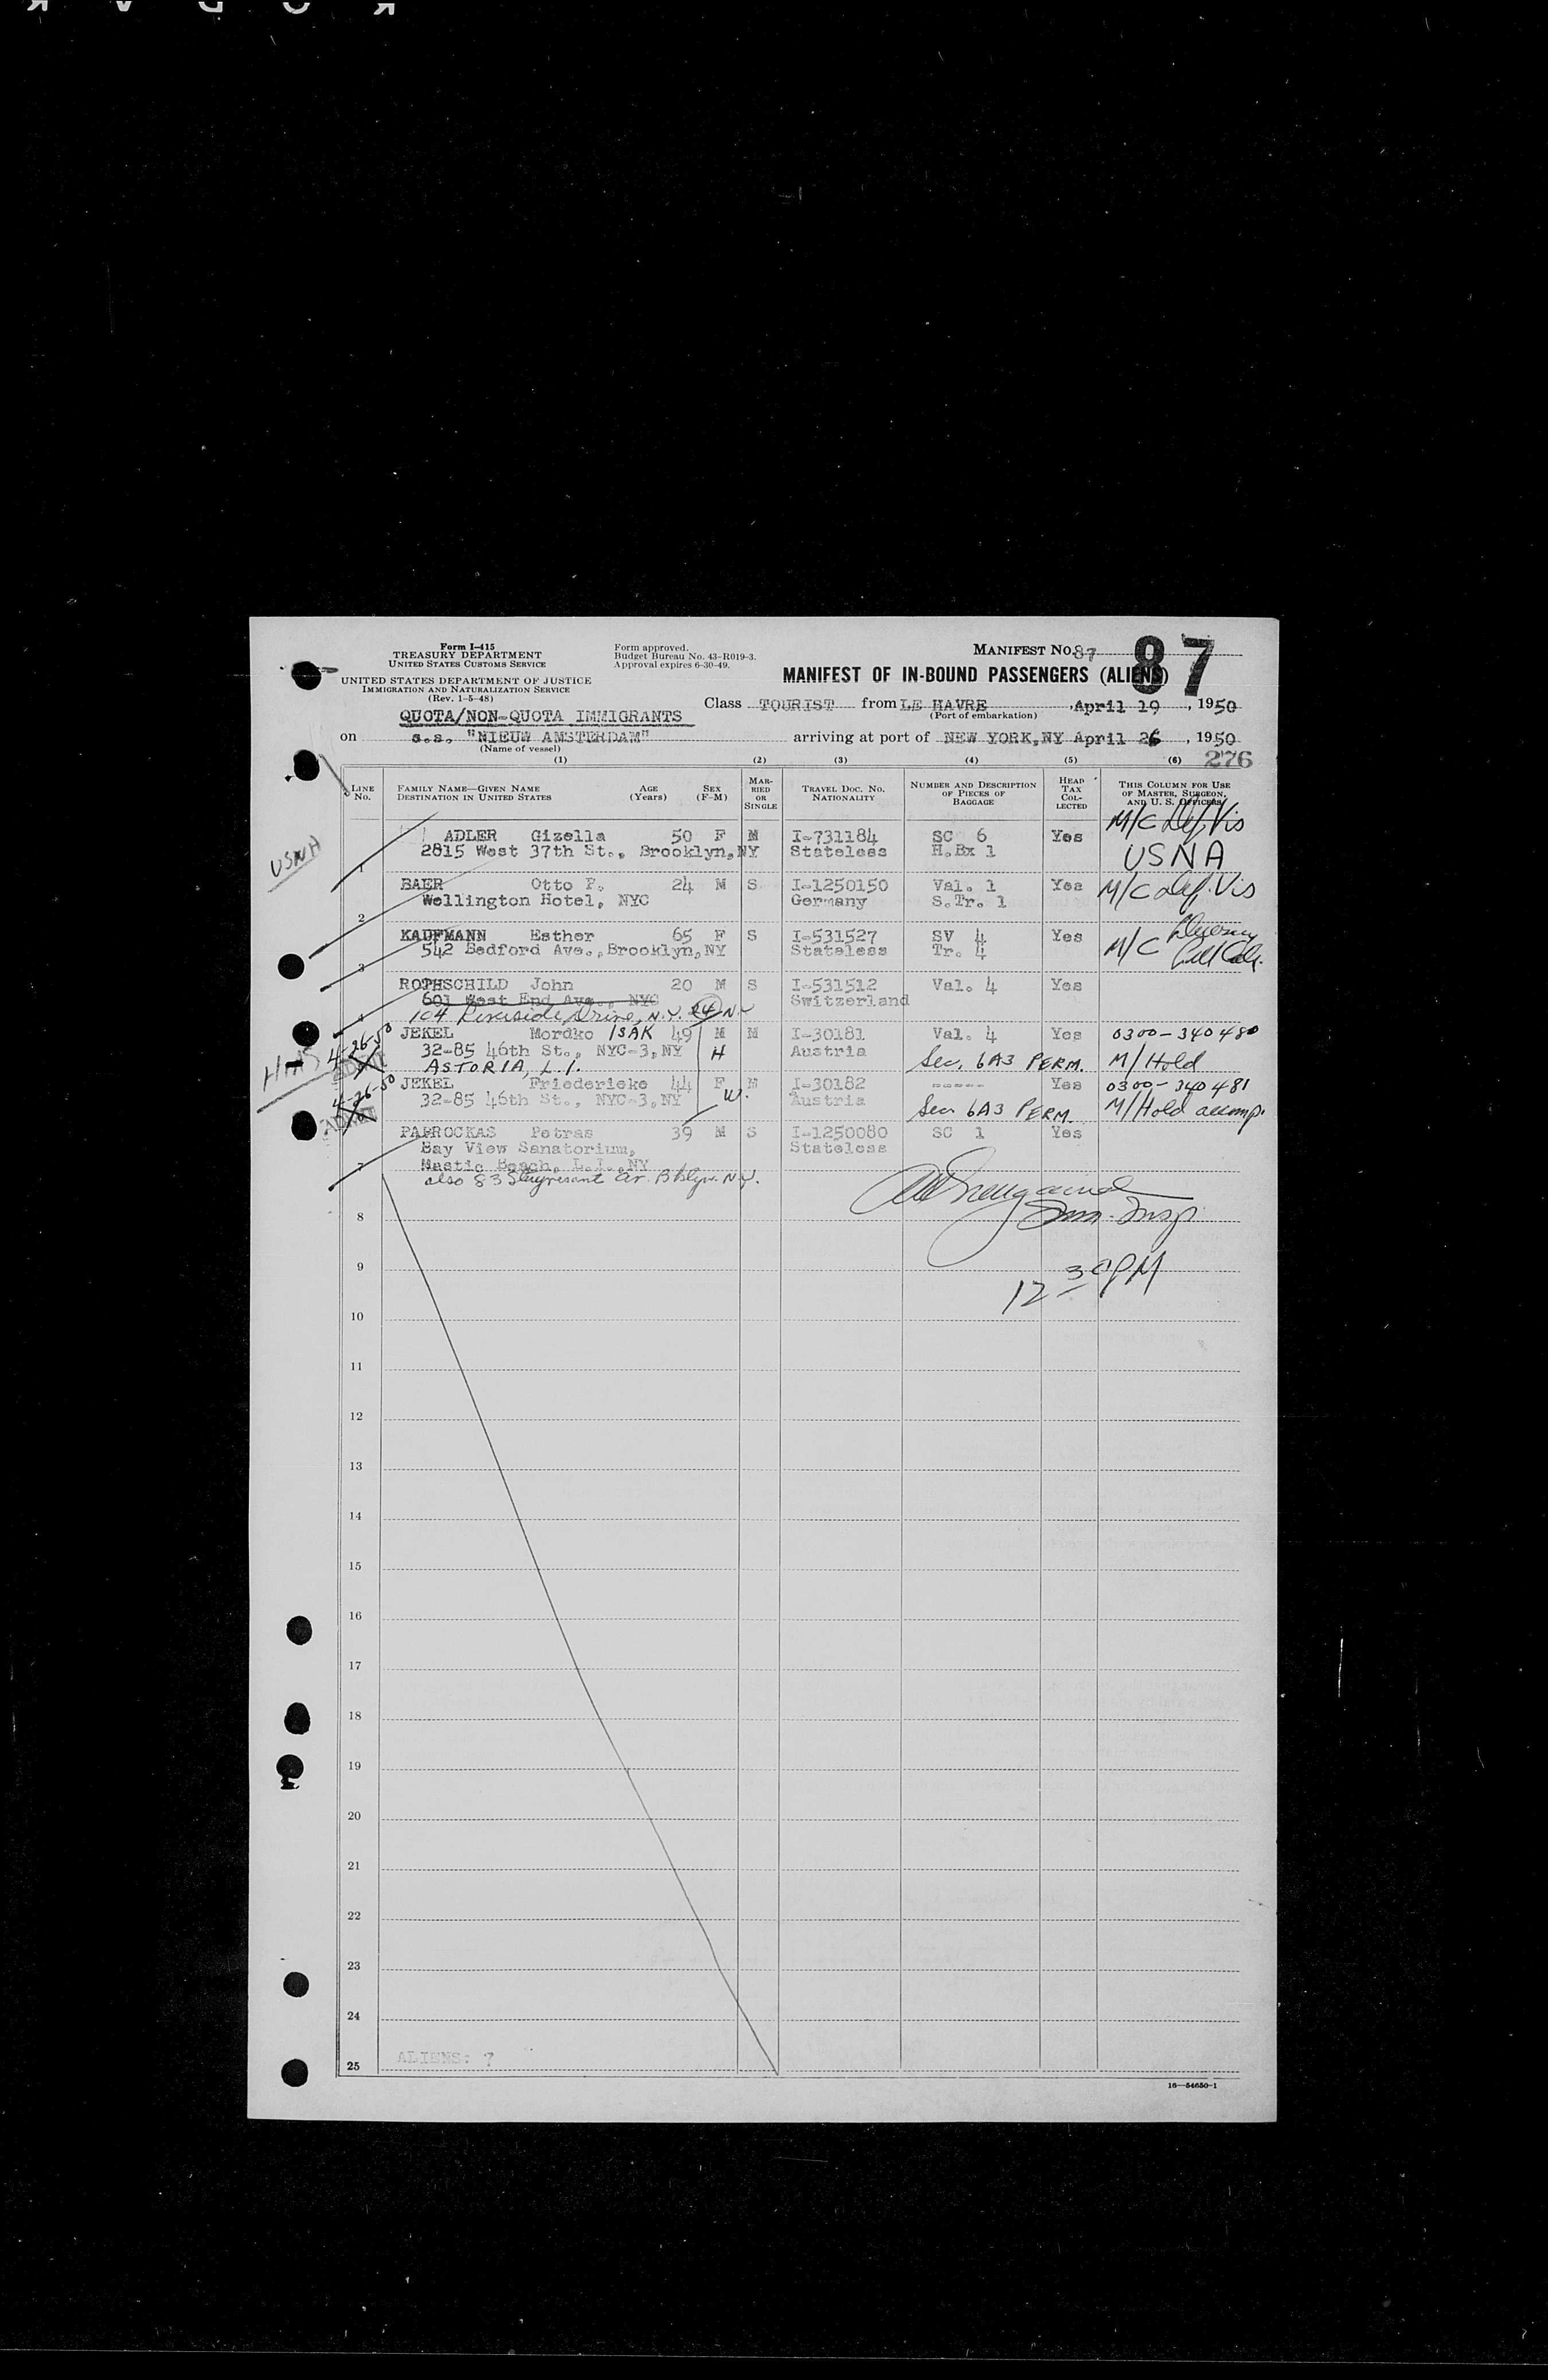 Form I-415
TREASURY DEPARTMENT
UNITED STATES CUSTOMS SERVICE
UNITED STATES DEPARTMENT OF JUSTICE
IMMIGRATION AND NATURALIZATION SERVICE
(Rev. 1-5-48)
Form approved.
Budget Bureau No. 43-R019-3.
Approval expires 6-30-49.
MANIFEST No. 87
87
MANIFEST OF IN-BOUND PASSENGERS (ALIENS)
QUOTA/NON-QUOTA IMMIGRANTS
Class TOURIST from LE HAVRE, April 19, 1950
(Port of embarkation)
on s.s. "NIEUW AMSTERDAM" arriving at port of NEW YORK,NY April 26, 1950
(Name of vessel)
276
(1) (2) (3) (4) (5) (6)
LINE No.
FAMILY NAME—GIVEN NAME
DESTINATION IN UNITED STATES
AGE (Years)
SEX (F-M)
MARRIED OR SINGLE
TRAVEL DOC. NO. NATIONALITY
NUMBER AND DESCRIPTION OF PIECES OF BAGGAGE
HEAD TAX COLLECTED
THIS COLUMN FOR USE OF MASTER, SURGEON, AND U. S. OFFICERS
USNA
1 ADLER Gizella 50 F M I-731184 SC 6 Yes M/C Def. Vis
2815 West 37th St., Brooklyn,NY Stateless H.Bx 1 USNA
2 BAER Otto P. 24 M S I-1250150 Val. 1 Yes M/C Def. Vis
Wellington Hotel, NYC Germany S.Tr. 1
3 KAUFMANN Esther 65 F S I-531527 SV 4 Yes M/C
542 Bedford Ave.,Brooklyn,NY Stateless Tr. 4
4 ROTHSCHILD John 20 M S I-531512 Val. 4 Yes
601 West End Ave., NYC Switzerland
104 Riverside Drive, N.Y. 24 N.Y.
4-26-50
JEKEL Mordko ISAK 49 M M I-30181 Val. 4 Yes 0300-340480
32-85 46th St., NYC-3,NY H Austria Sec. 6A3 PERM. M/Hold
ASTORIA, L.I.
4-26-50
JEKEL Friederieke 44 F M I-30182 ----- Yes 0300-340481
32-85 46th St., NYC-3,NY W. Austria Sec 6A3 PERM. M/Hold accomp.
7 PAPROCKAS Petras 39 M S I-1250080 SC 1 Yes
Bay View Sanatorium, Stateless
Mastic Beach, L.I.,NY
also 83 Stuyvesant Av. Bklyn. N.Y.
Imm. Insp.
12 30 PM
8
9
10
11
12
13
14
15
16
17
18
19
20
21
22
23
24
25 ALIENS: 7
16—54650-1